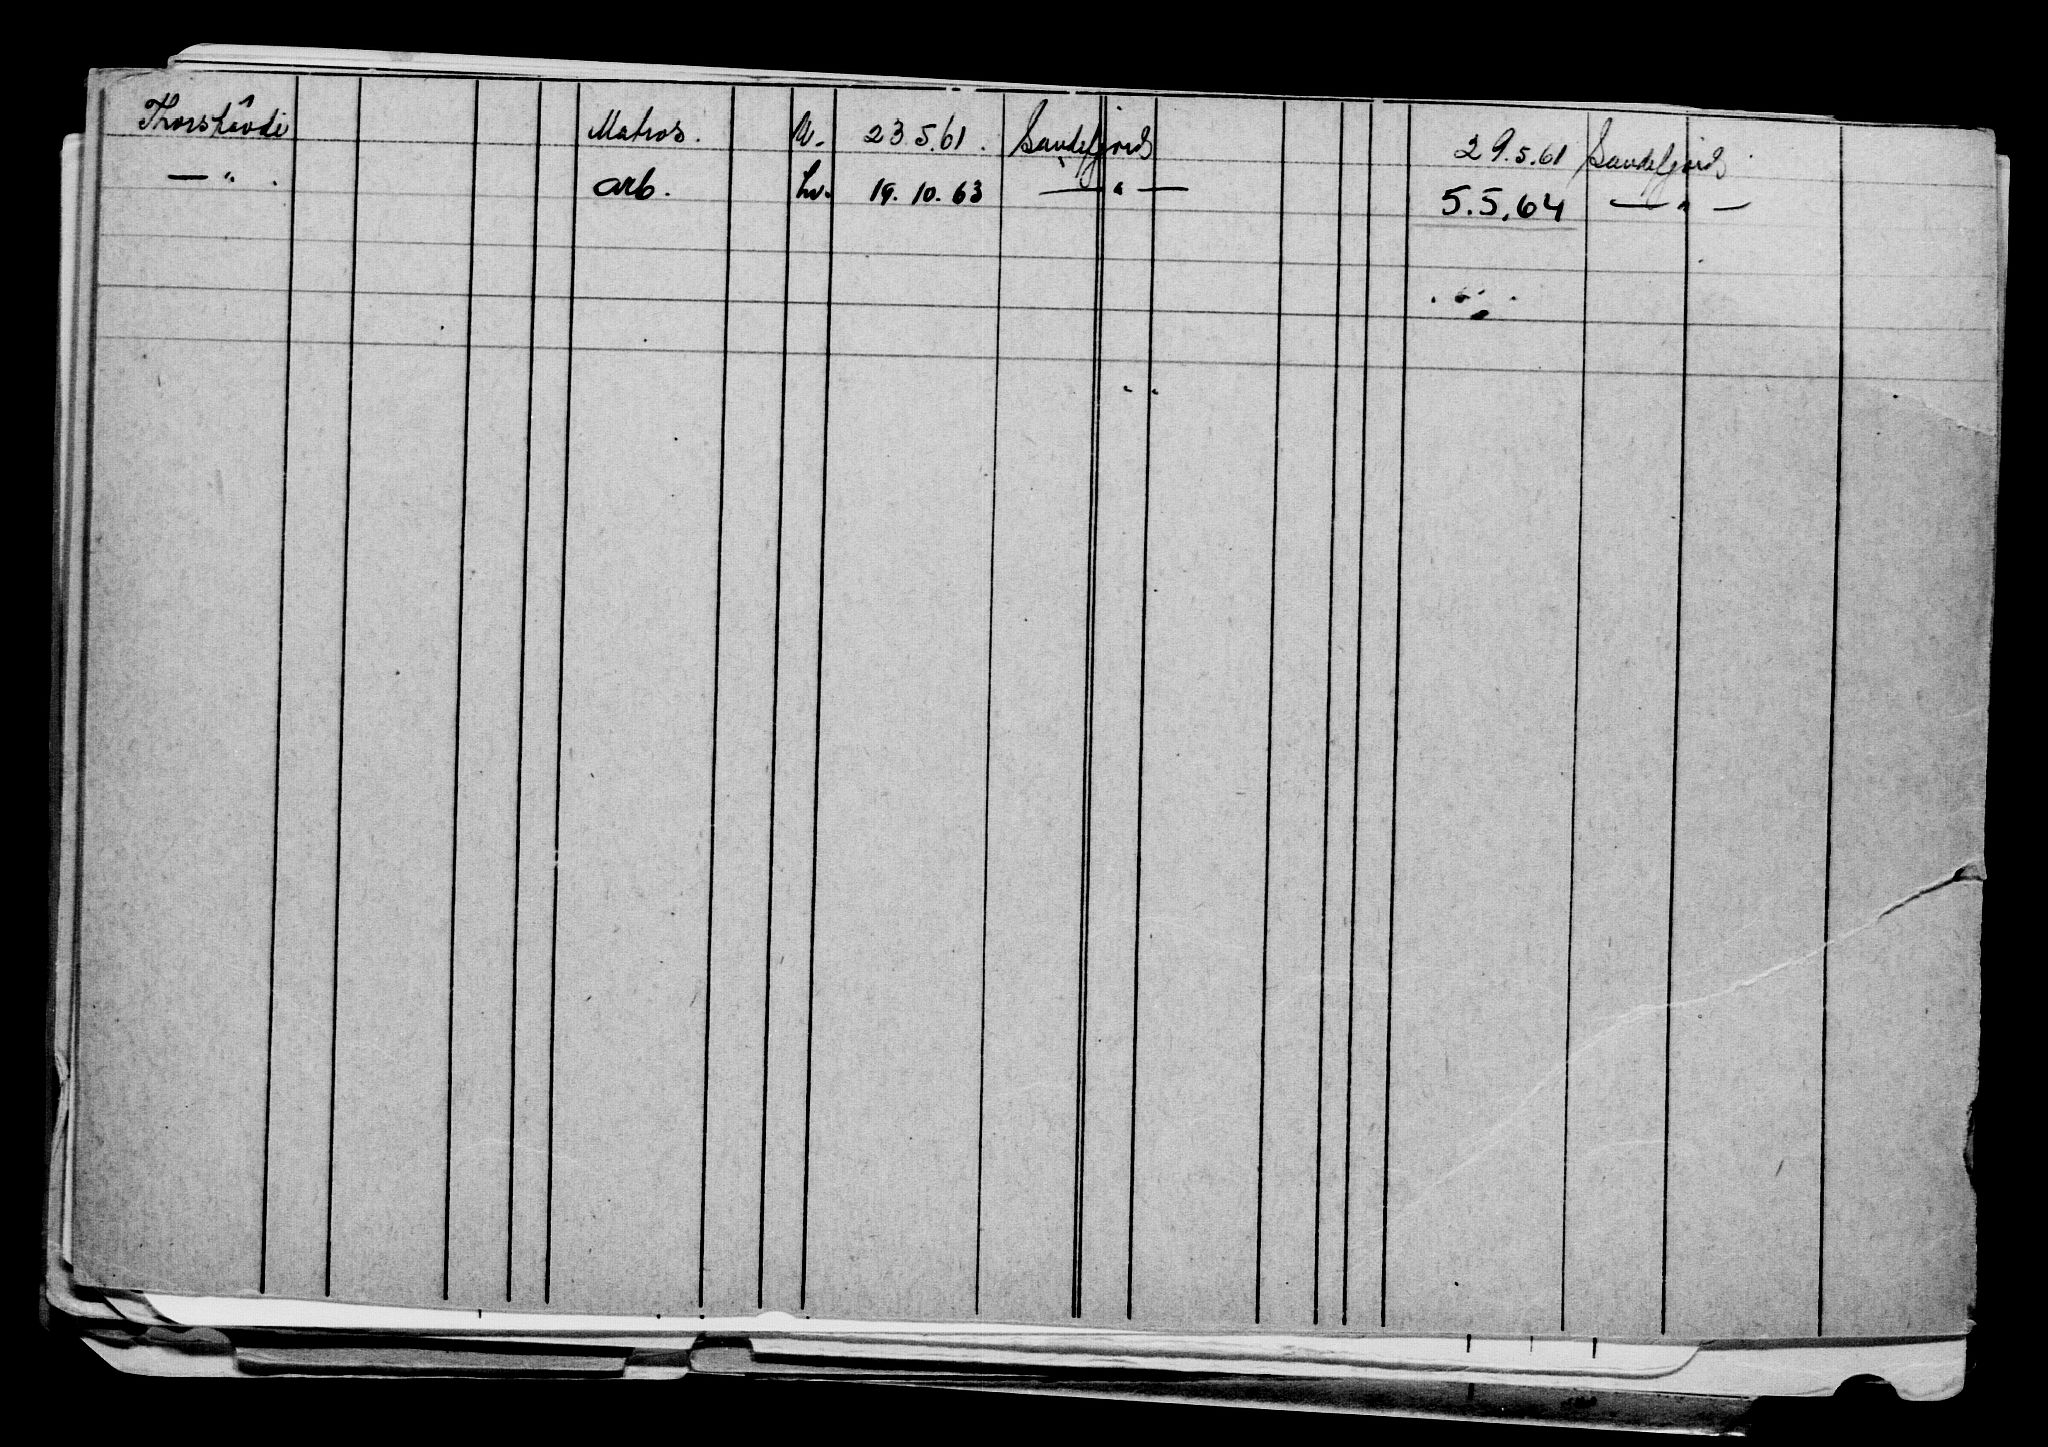 Thorshøvdi Matros. U. 23.5.61. Sandefjord 29.5.61 Sandefjord
— " . arb. hv. 19.10.63 — " — 5.5.64 — " —